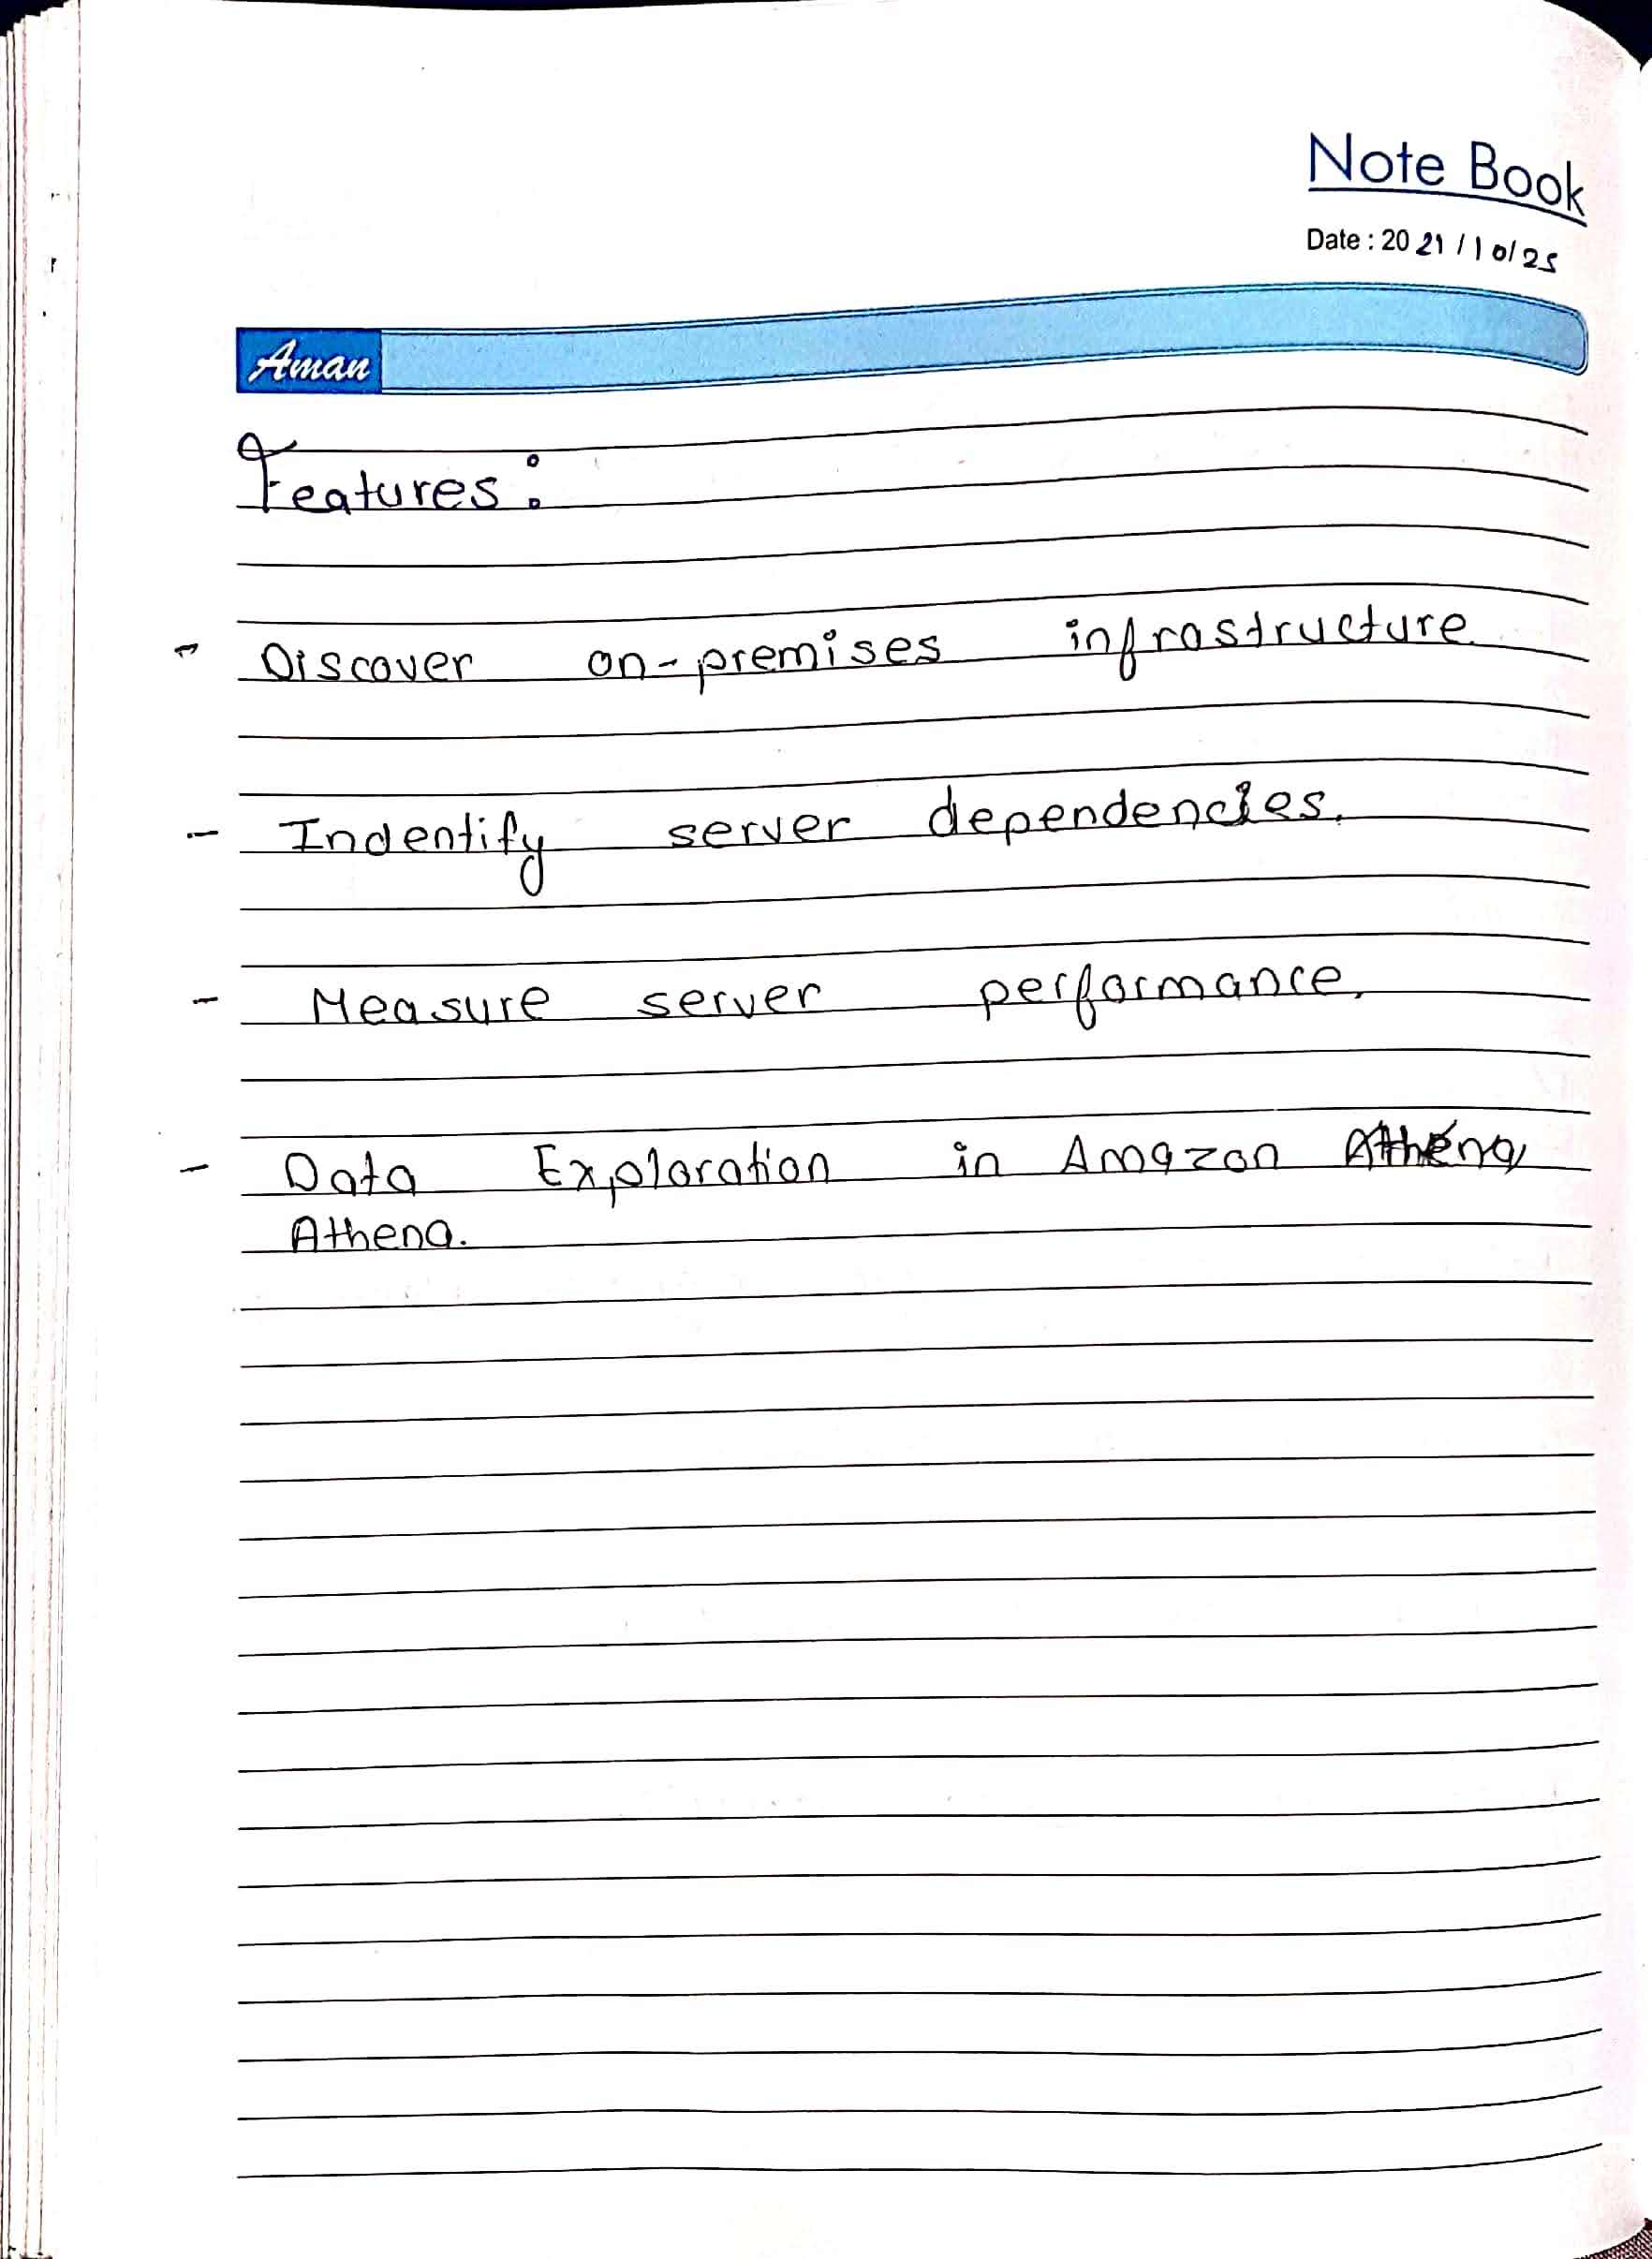 Note Book
Date : 2021/10/25
Aman
Features:
- Discover on-premises infrastructure
- Indentify server dependencies.
- Measure server performance.
- Data Exploration in Amazon Athena
Athena.